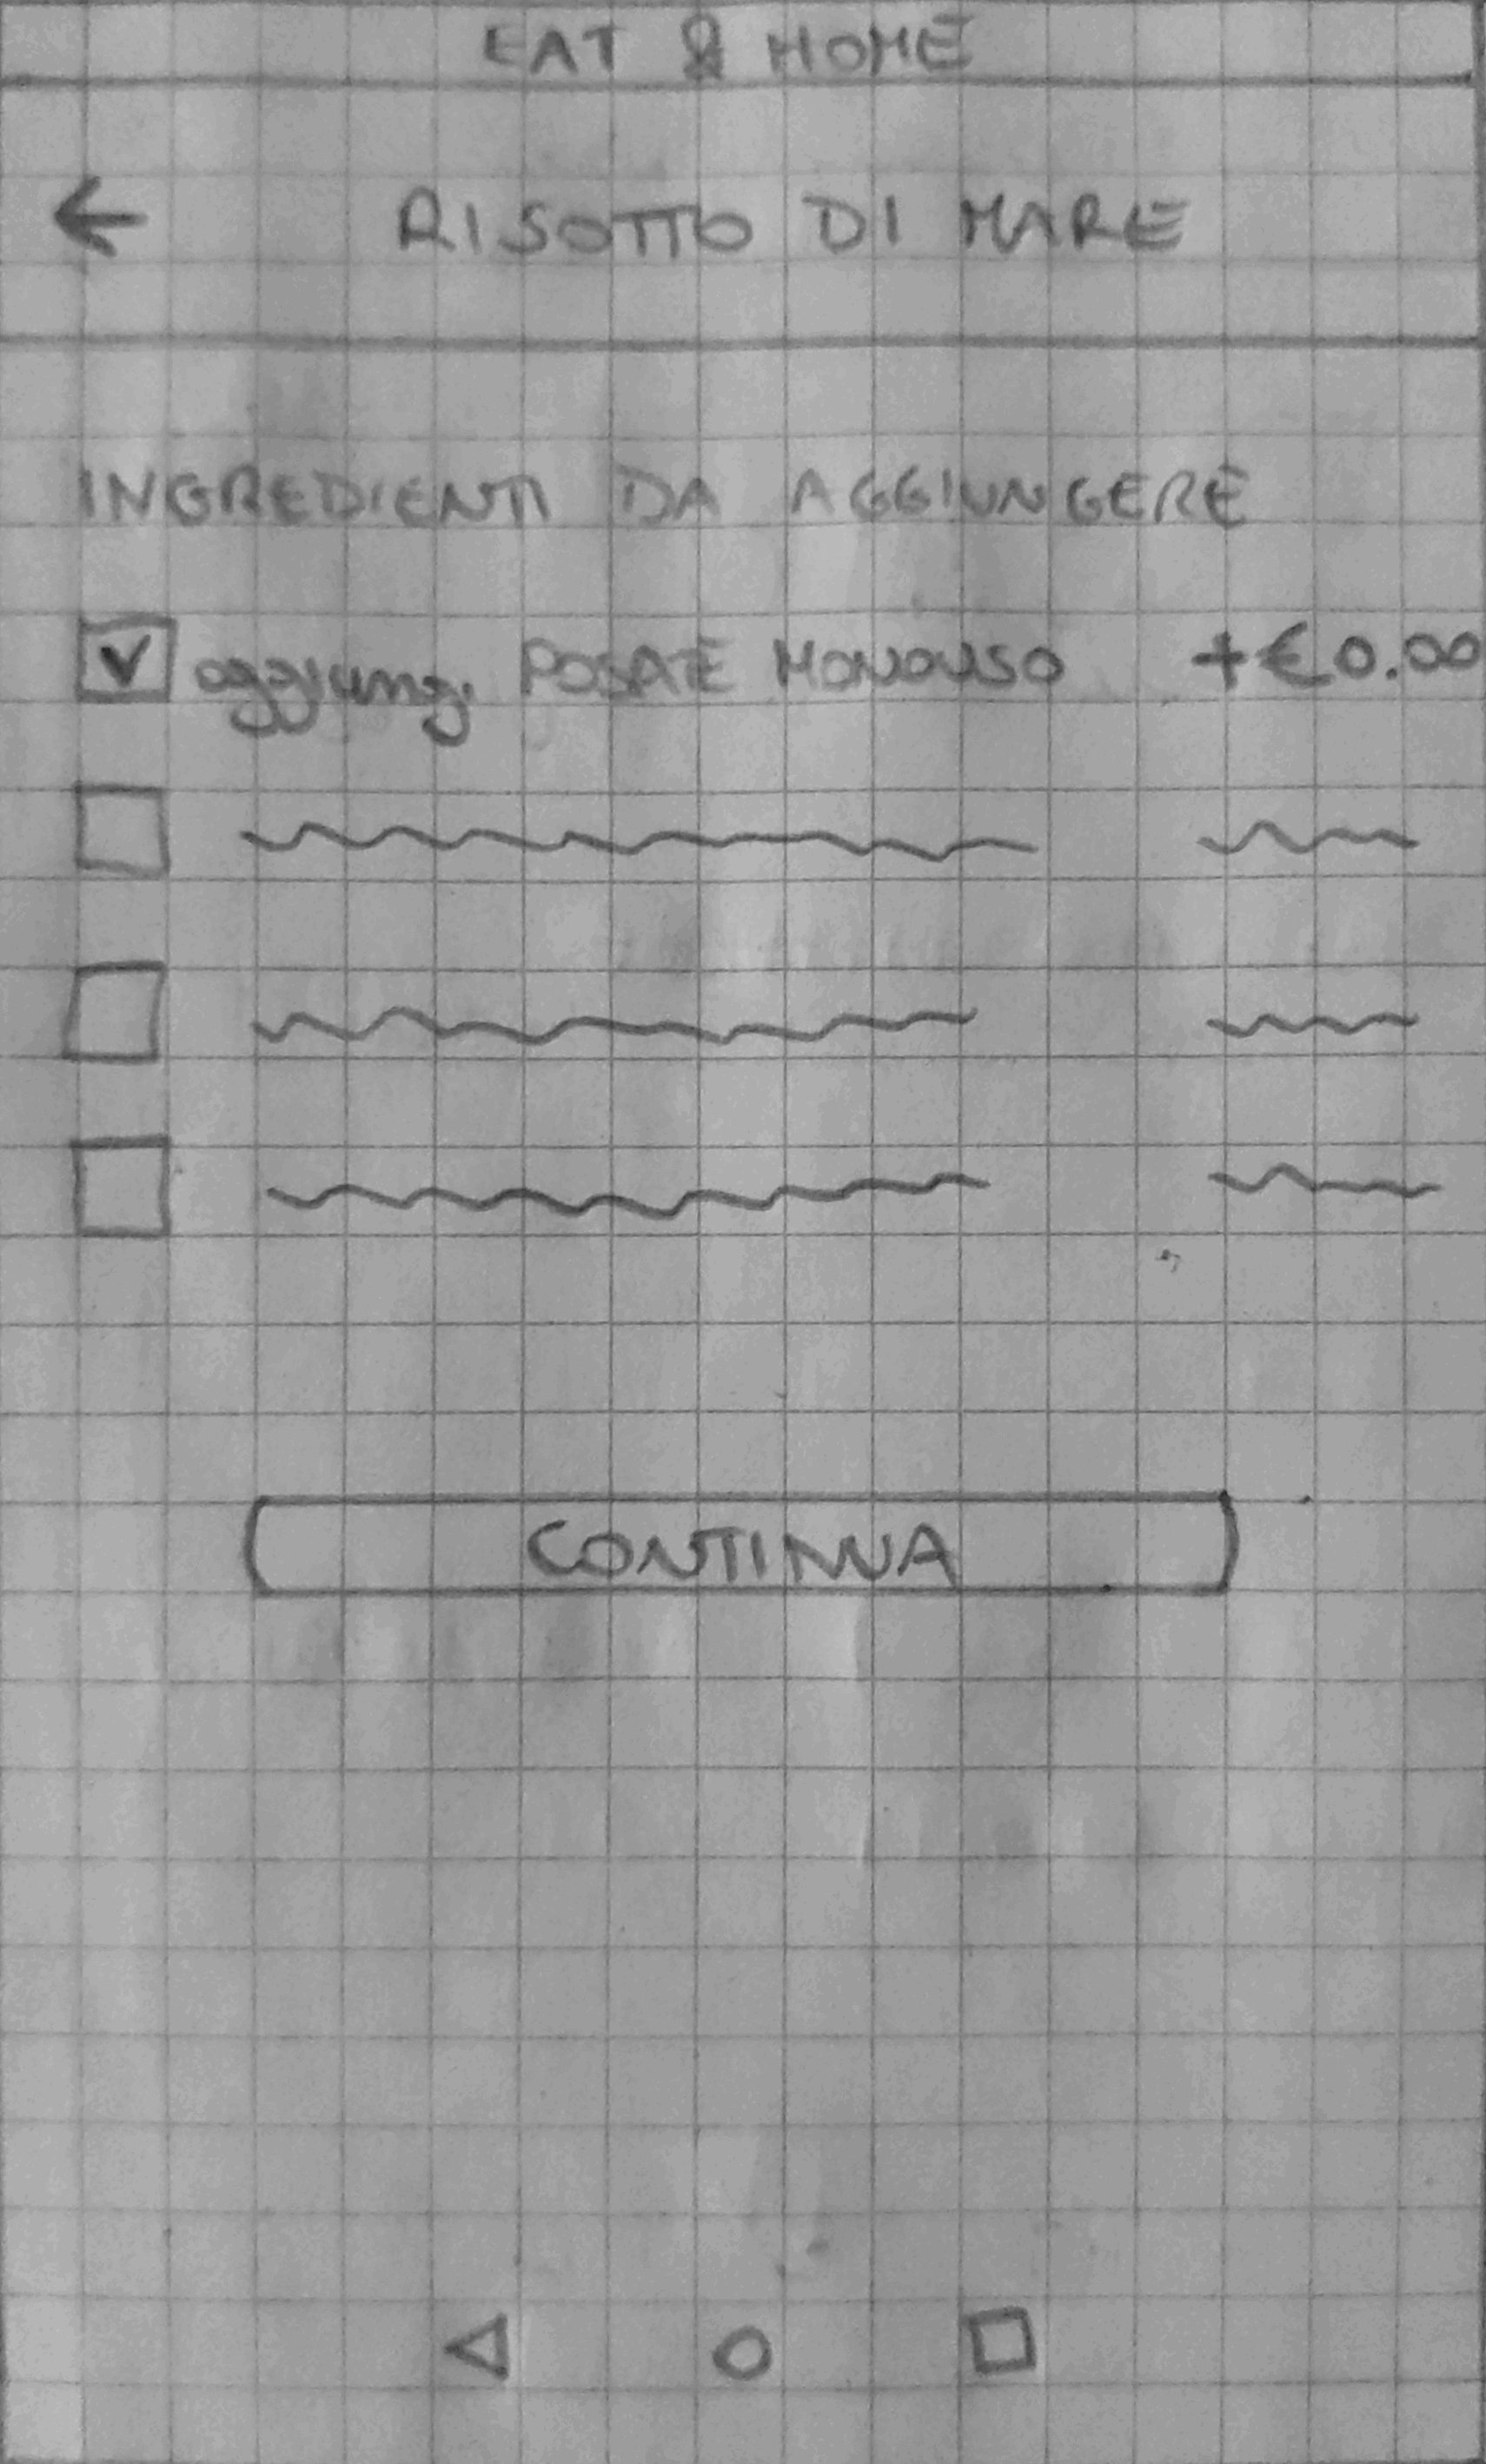 EAT & HOME
← RISOTTO DI MARE
INGREDIENTI DA AGGIUNGERE
aggiungi POSATE MONOUSO +€0.00
CONTINUA